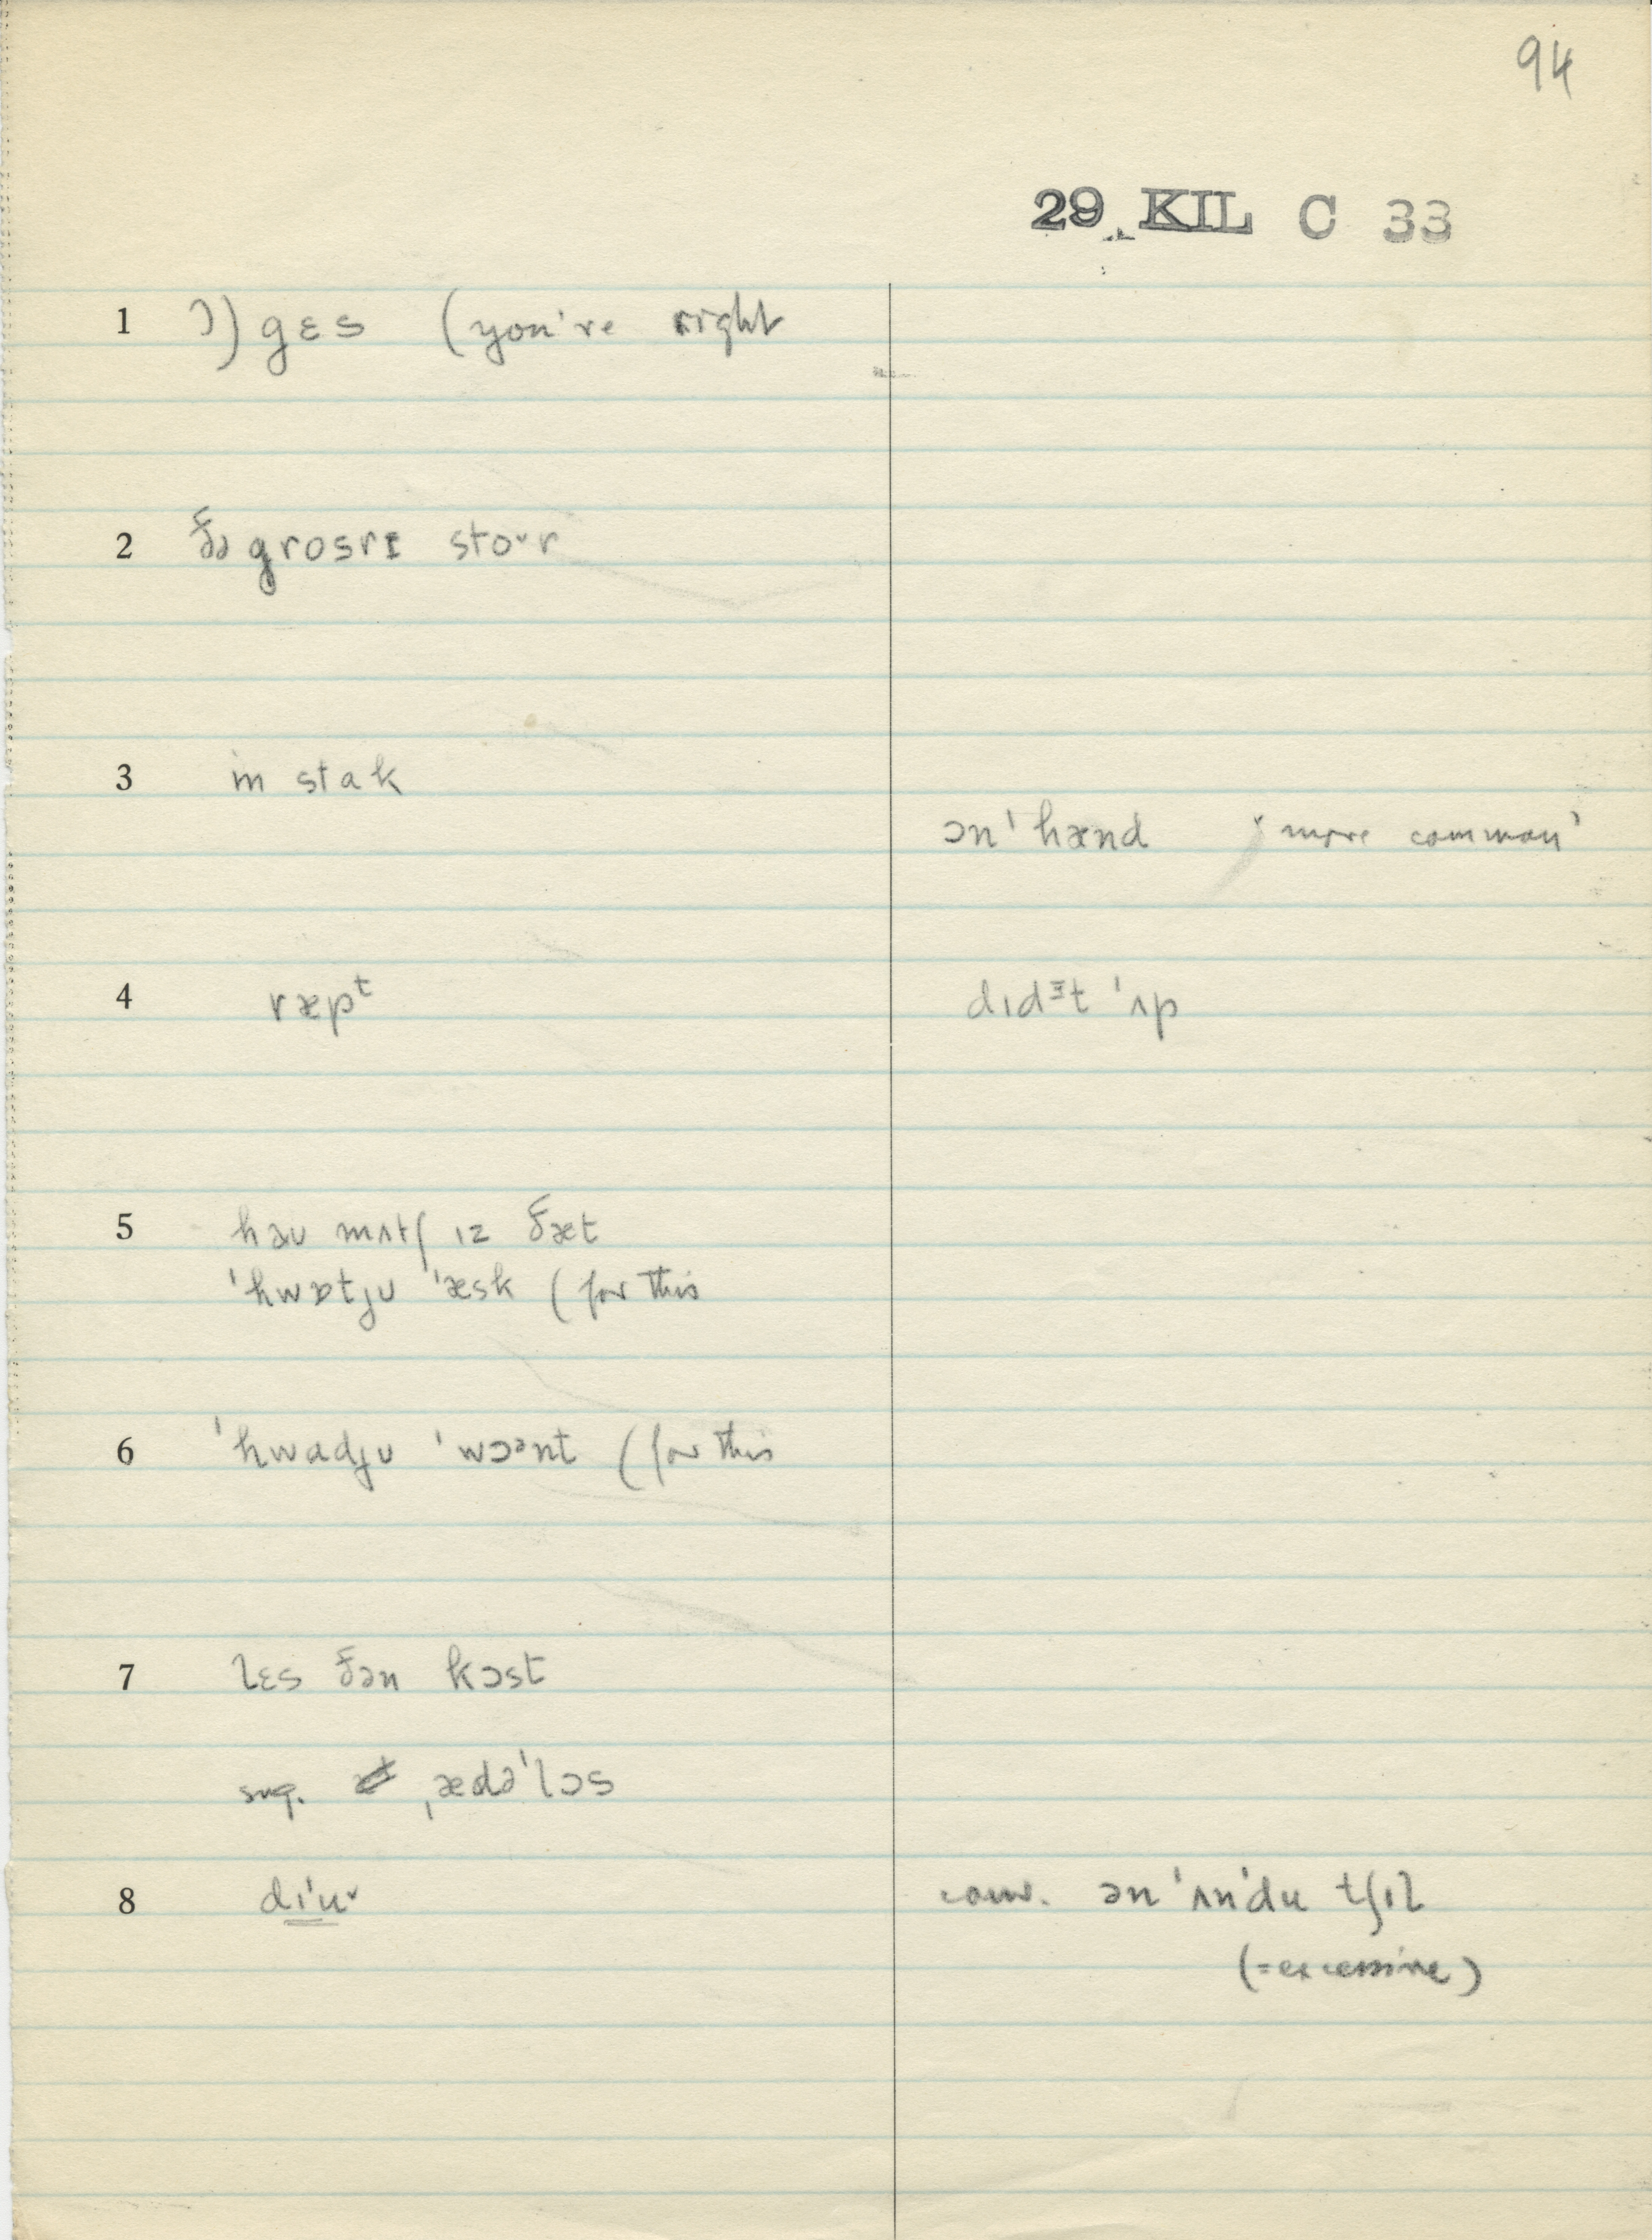 94
29 KIL C 33
1 Ɔ) gɛs (you're right
2 ðə grosrɪ sto˞r
3 in stak
ɔn ˈhænd ‘more common’
4 ræpᵗ dɪdᵻt ˈʌp
5 həʊ mʌtʃ ɪz ðæt
ˈhwɒtjʊ ˈæsk (for this
6 ˈhwɑdjʊ ˈwɔᵊnt (for this
7 lɛs ðən kɔst
sug. ˌædəˈlɔs
8 dɪˈu˅ conv. ən ˈʌnˈdu tʃɪl
(=excessive)